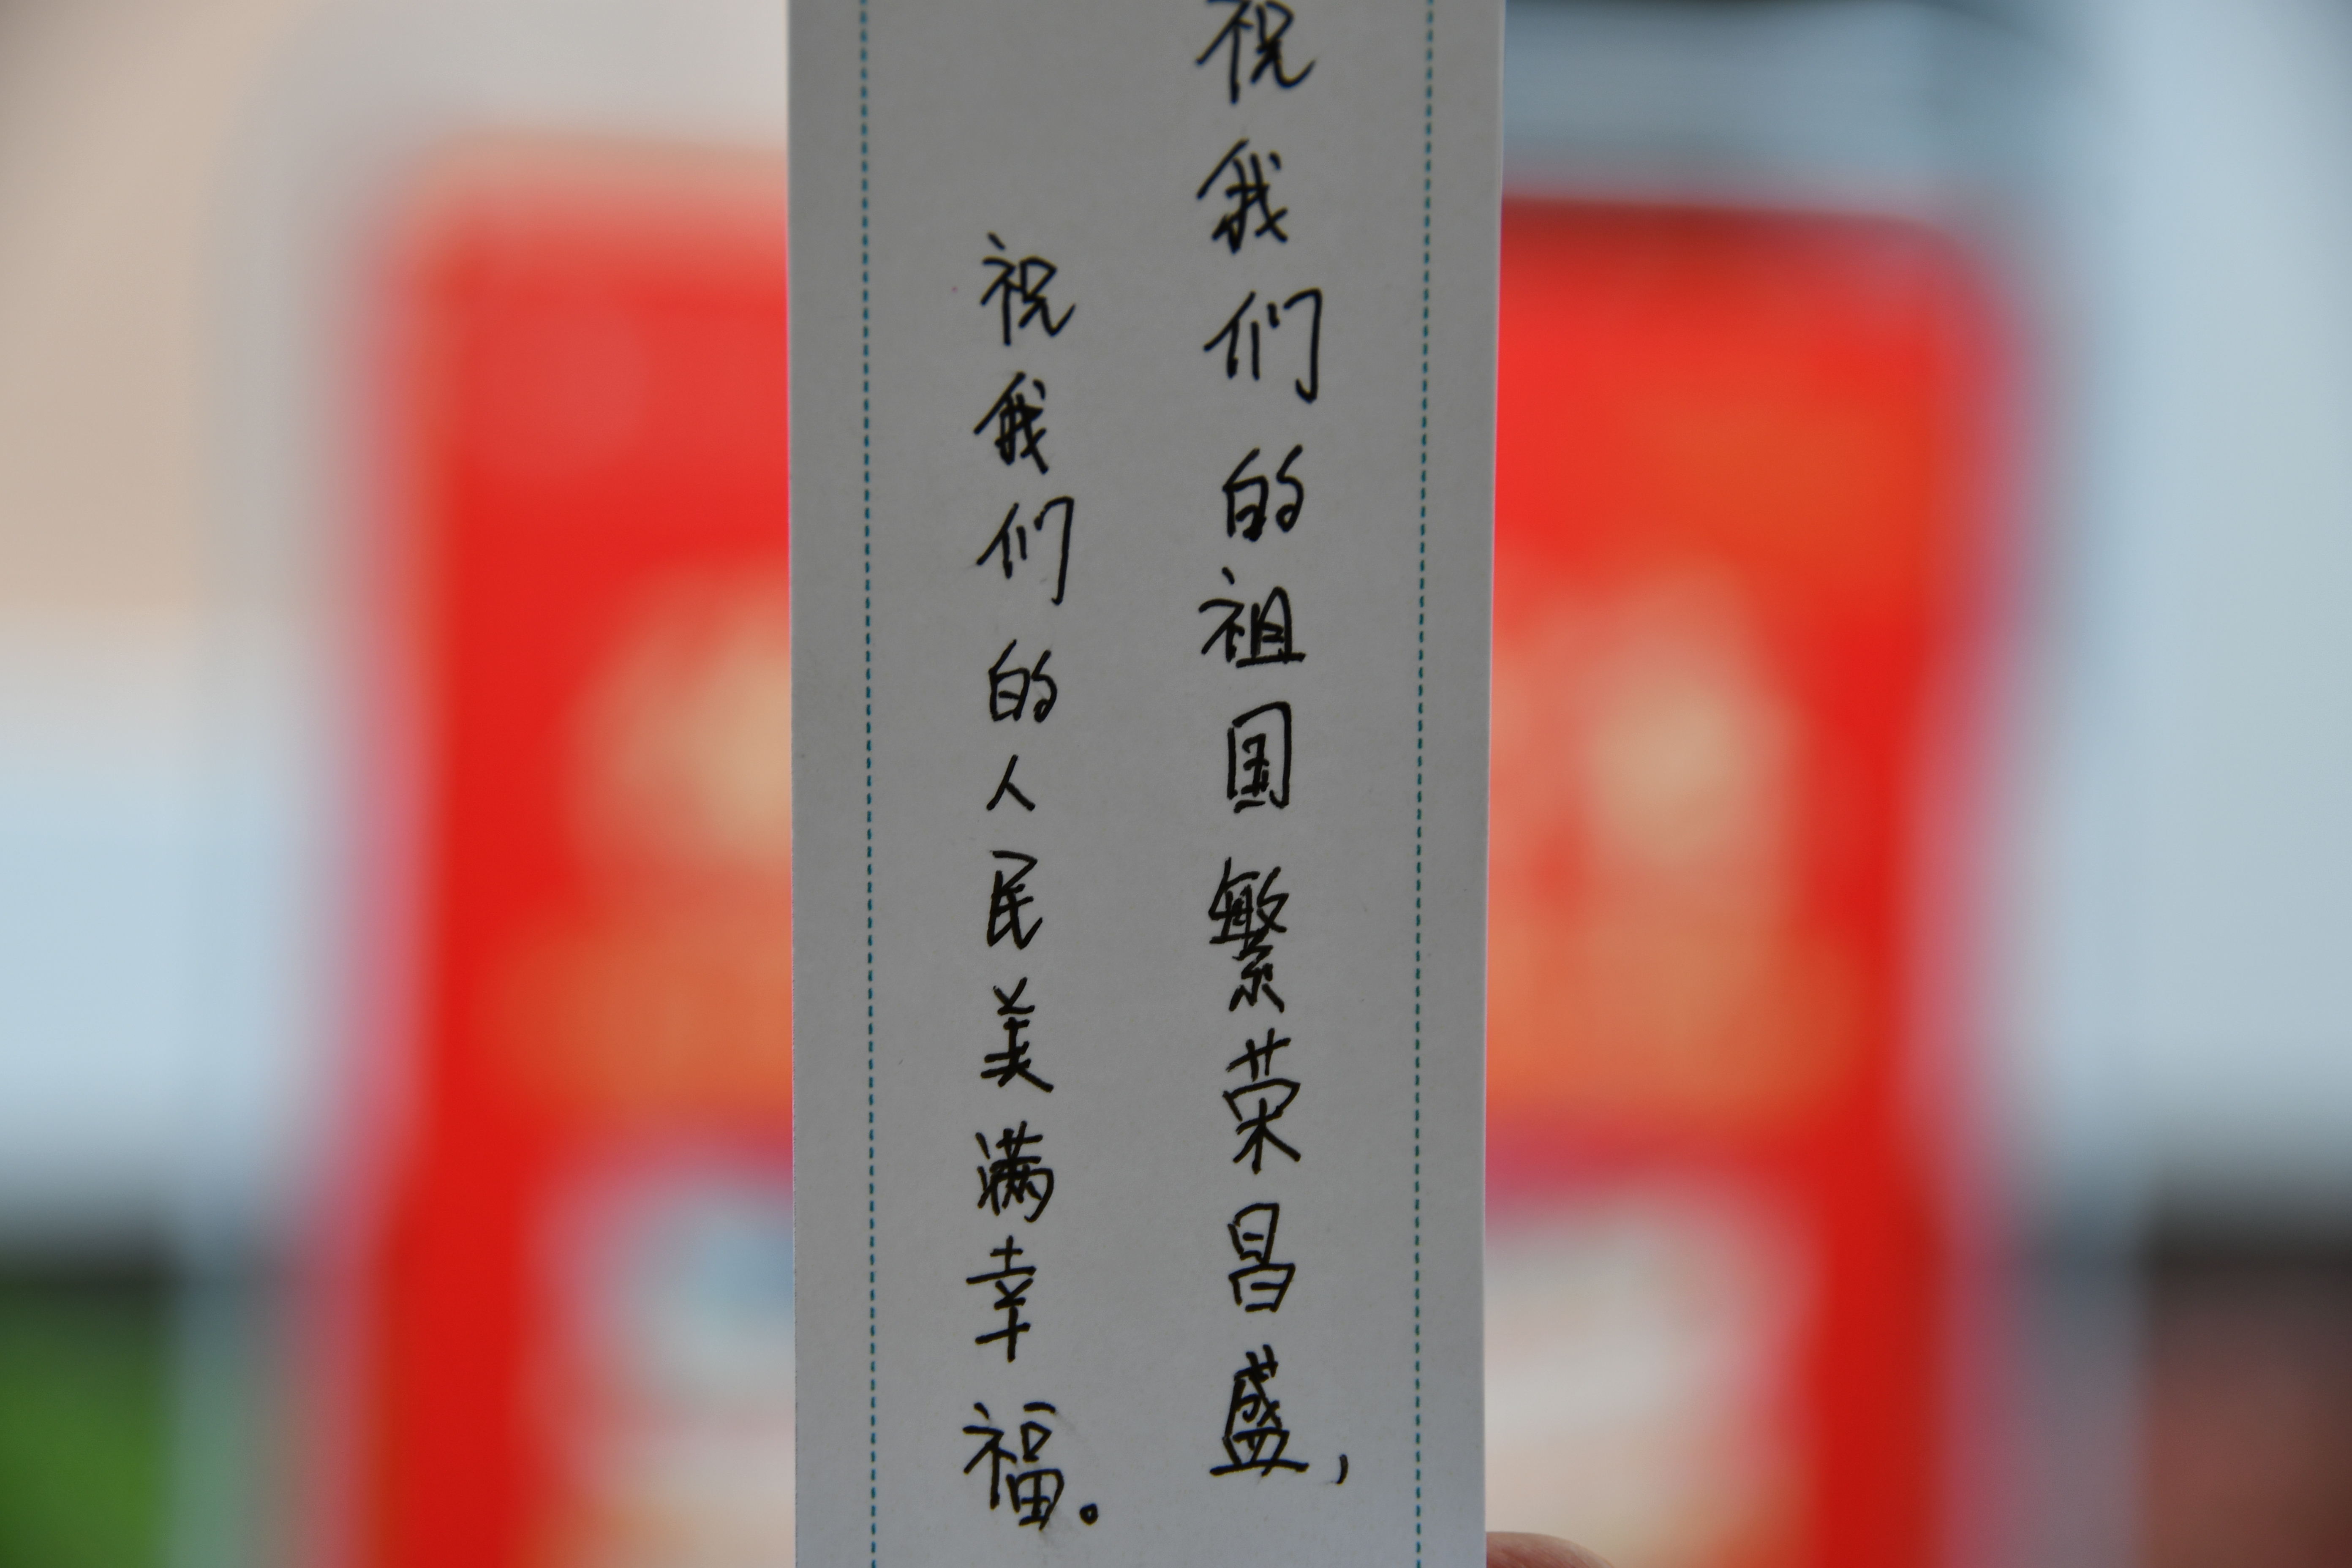 祝我们的祖国繁荣昌盛，
祝我们的人民美满幸福。